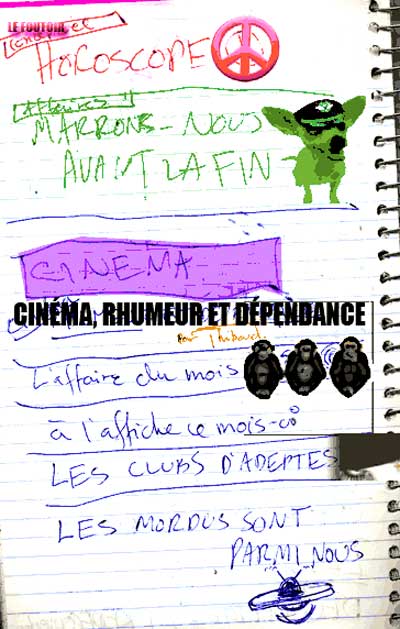 LE FOUTOIR
HOROSCOPE
affaires
MARRONS-NOUS
AVANT LA FIN
CINEMA
CINÉMA, RHUMEUR ET DÉPENDANCE
par Thibaud
L'affaire du mois
à l'affiche ce mois-ci
LES CLUBS D'ADEPTES
LES MORDUS SONT
PARMI NOUS